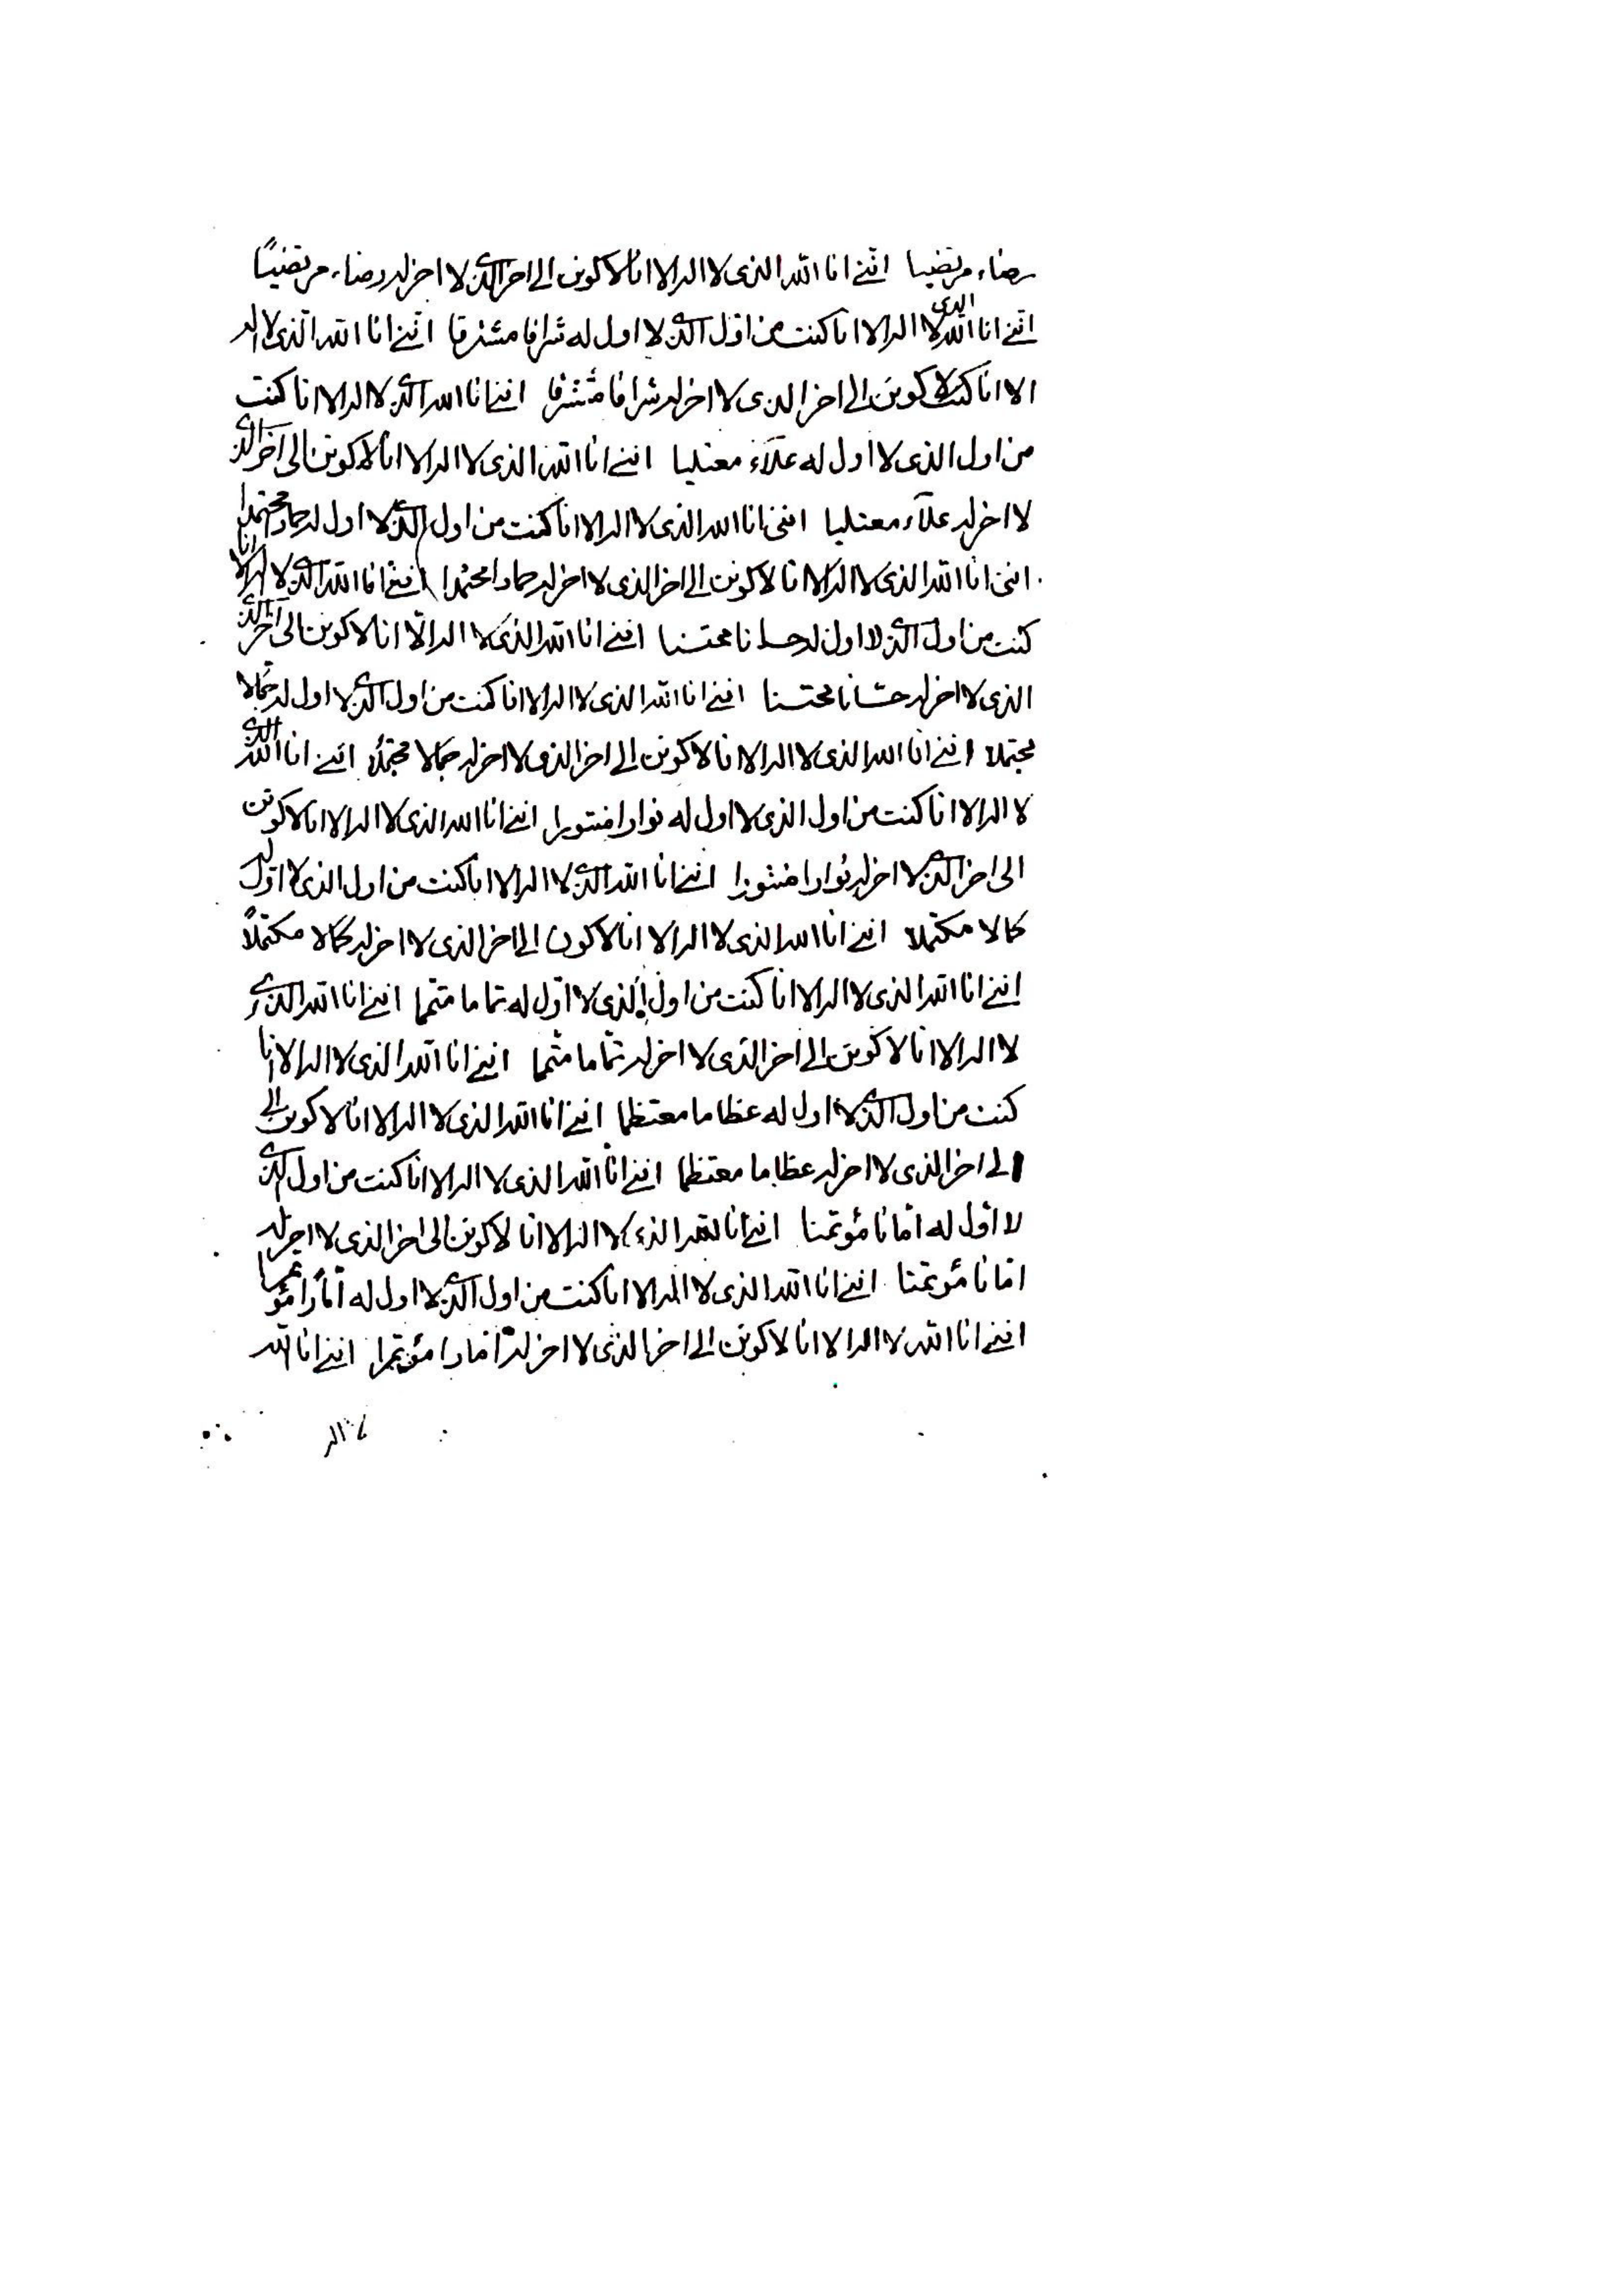 رضاء مرتضيا اننى انا الله الذى لا اله الا انا لاكونن الى اخر الذى لا اخر له رضاء مرتضيًا
اننى انا الله الذى لا اله الا انا كنت من اوّل الذى لا اول له شرافا مشترفا اننى انا الله الذى لا اله
الا انا كنت لاكونن الى اخر الذى لا اخر له شرافا مشترفا اننى انا الله الذى لا اله الا انا كنت
من اول الذى لا اول له علآء معتليا اننى انا الله الذى لا اله الا انا لاكونن الى آخر الذى
لا اخر له علآء معتليا اننى انا الله الذى لا اله الا انا كنت من اول الذى لا اول له حمادا محتمدا
اننى انا الله الذى لا اله الا انا لاكونن الى اخر الذى لا اخر له حمادا محتمدا اننى انا الله الذى لا اله الا انا
كنت من اول الذى لا اول له حسانا محتسنا اننى انا الله الذى لا اله الّا انا لاكونن الى آخر الذى
الذى لا اخر له حسّانا محتسنا اننى انا الله الذى لا اله الا انا كنت من اول الذى لا اول له جمالا
مجتملا اننى انا الله الذى لا اله الا انا لاكونن الى اخر الذى لا اخر له جمالا مجتملًا اننى انا الله الذى
لا اله الا انا كنت من اول الذى لا اول له نوارا منتورا اننى انا الله الذى لا اله الا انا لاكونن
الى اخر الذى لا اخر له نوارا منتورا اننى انا الله الذى لا اله الا انا كنت من اول الذى لا اوّل له
كمالا مكتملا اننى انا الله الذى لا اله الا انا لاكونن الى اخر الذى لا اخر له كمالا مكتملًا
اننى انا الله الذى لا اله الا انا كنت من اول الذى لا اوّل له تماما متتما اننى انا الله الذى
لا اله الا انا لاكونن الى اخر الذى لا اخر له تماما متتما اننى انا الله الذى لا اله الا انا
كنت من اول الذى لا اول له عظاما معتظما اننى انا الله الذى لا اله الا انا لاكونن الى
الى اخر الذى لا اخر له عظاما معتظما اننى انا الله الذى لا اله الا انا كنت من اول الذى
لا اوّل له امّانا مؤتمنا اننى انا الله الذى لا اله الا انا لاكونن الى اخر الذى لا اخر له
امّانا مؤتمنا اننى انا الله الذى لا اله الا انا كنت من اول الذى لا اول له امّارا مؤتمرا
اننى انا الله لا اله الا انا لاكونن الى اخر الذى لا اخر له امّارا مؤتمرا اننى انا الله
لا اله